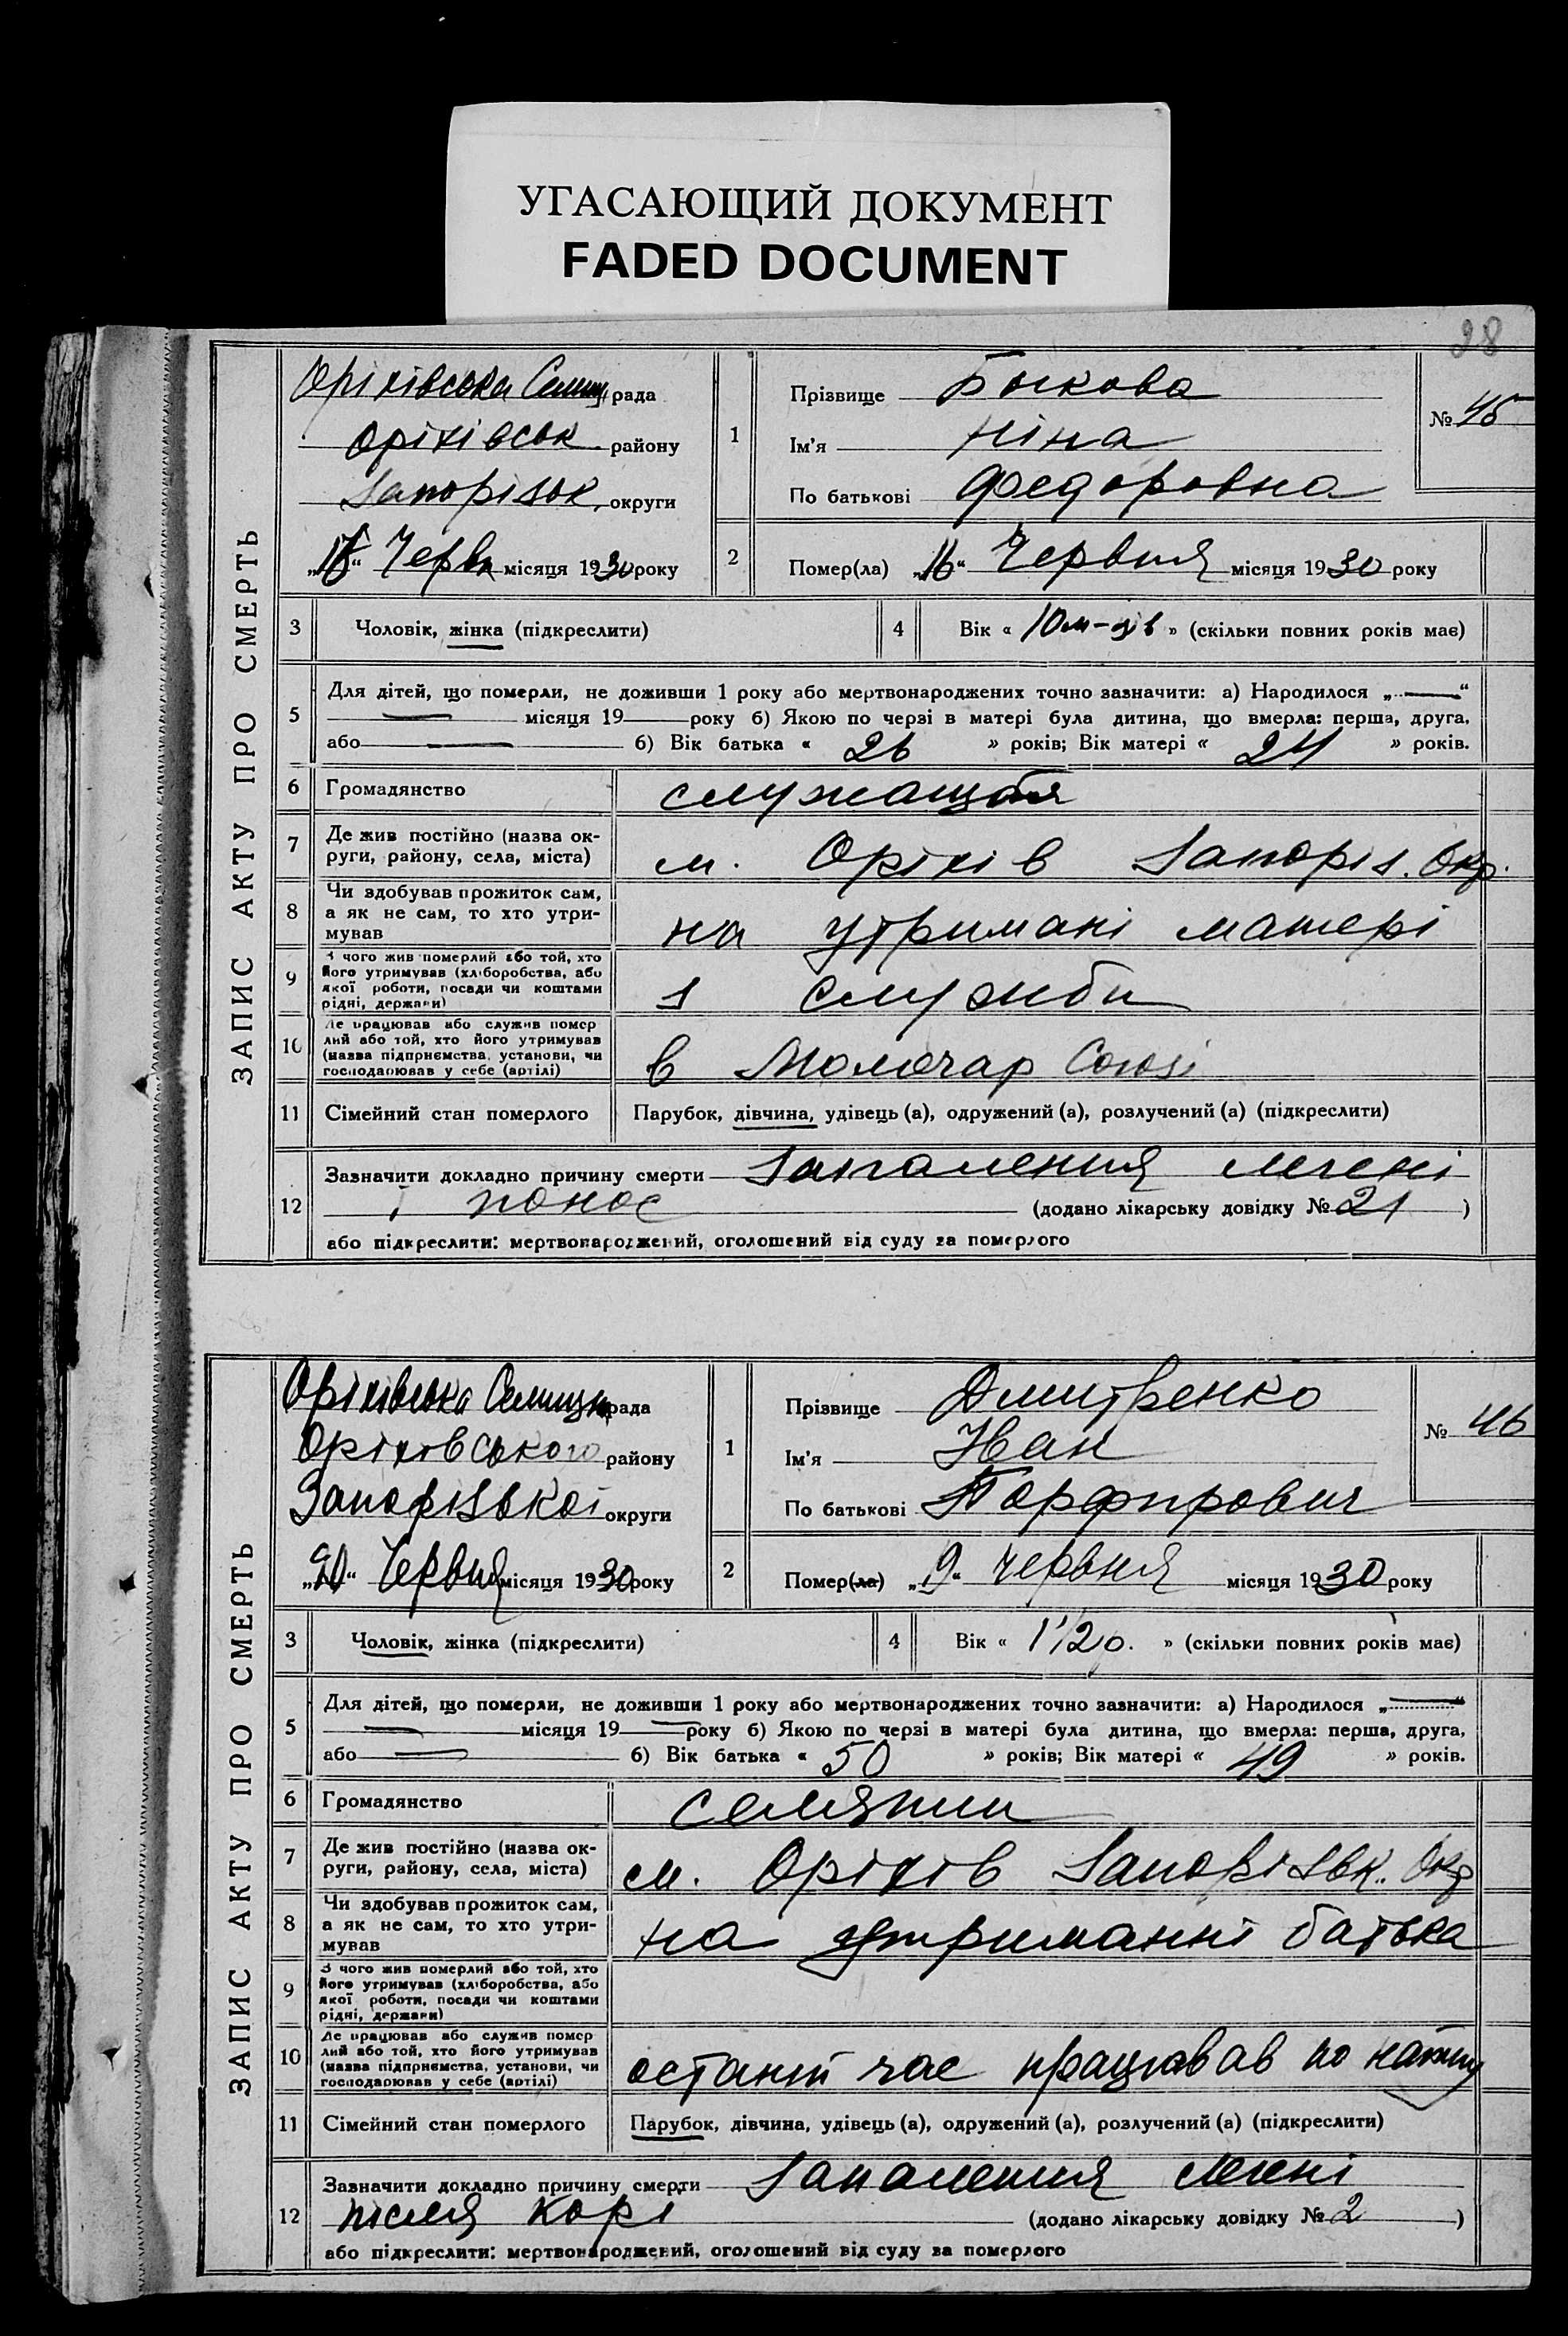 УГАСАЮЩИЙ ДОКУМЕНТ
FADED DOCUMENT
28
ЗАПИС АКТУ ПРО СМЕРТЬ
Оріхівська Селищ рада
Оріхівськ району
Запорізьк. округи
„16“ Черв місяця 1930 року
1
Прізвище Бикова
Ім'я Ніна
По батькові Федоровна
№ 45
2
Помер(ла) „16“ Червня місяця 1930 року
3
Чоловік, жінка (підкреслити)
4
Вік « 10 м-ців » (скільки повних років має)
5
Для дітей, що померли, не доживши 1 року або мертвонароджених точно зазначити: а) Народилося „—“
— місяця 19— року б) Якою по черзі в матері була дитина, що вмерла: перша, друга,
або — б) Вік батька « 26 » років; Вік матері « 24 » років.
6
Громадянство
служащая
7
Де жив постійно (назва ок-
руги, району, села, міста)
м. Оріхів Запоріз. Окр.
8
Чи здобував прожиток сам,
а як не сам, то хто утри-
мував
на утримані матері
9
З чого жив померлий або той, хто
його утримував (хліборобства, або
якої роботи, посади чи коштами
рідні, держави)
з служби
10
Де працював або служив помер
лий або той, хто його утримував
(назва підприємства, установи, чи
господарював у себе (артілі)
в Молочар Союзі
11
Сімейний стан померлого
Парубок, дівчина, удівець (а), одружений (а), розлучений (а) (підкреслити)
12
Зазначити докладно причину смерти Запалення легені
і понос (додано лікарську довідку № 21 )
або підкреслити: мертвонароджений, оголошений від суду за померлого
ЗАПИС АКТУ ПРО СМЕРТЬ
Оріхівська Селищна рада
Оріхівського району
Запорізької округи
„20“ Червня місяця 1930 року
1
Прізвище Дмитренко
Ім'я Іван
По батькові Порфирович
№ 46
2
Помер(ла) „9“ червня місяця 1930 року
3
Чоловік, жінка (підкреслити)
4
Вік « 1 1/2 р. » (скільки повних років має)
5
Для дітей, що померли, не доживши 1 року або мертвонароджених точно зазначити: а) Народилося „—“
— місяця 19— року б) Якою по черзі в матері була дитина, що вмерла: перша, друга,
або — б) Вік батька « 50 » років; Вік матері « 49 » років.
6
Громадянство
селянин
7
Де жив постійно (назва ок-
руги, району, села, міста)
м. Оріхів Запорізьк. Окр
8
Чи здобував прожиток сам,
а як не сам, то хто утри-
мував
на утриманні батька
9
З чого жив померлий або той, хто
його утримував (хліборобства, або
якої роботи, посади чи коштами
рідні, держави)
10
Де працював або служив помер
лий або той, хто його утримував
(назва підприємства, установи, чи
господарював у себе (артілі)
останій час працював по найму
11
Сімейний стан померлого
Парубок, дівчина, удівець (а), одружений (а), розлучений (а) (підкреслити)
12
Зазначити докладно причину смерти Запалення легені
після корі (додано лікарську довідку № 2 )
або підкреслити: мертвонароджений, оголошений від суду за померлого